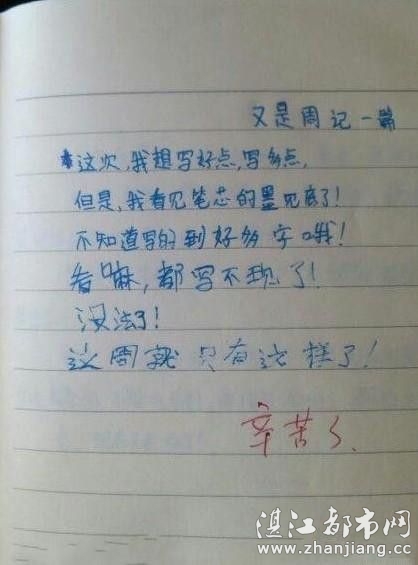 又是周记一篇
这次,我想写好点,写多点,
但是,我看见笔芯的墨见底了!
不知道写的到好多字哦!
看嘛,都写不现了!
没法了!
这周就只有这样了!
辛苦了、
湛江都市网
www.zhanjiang.cc